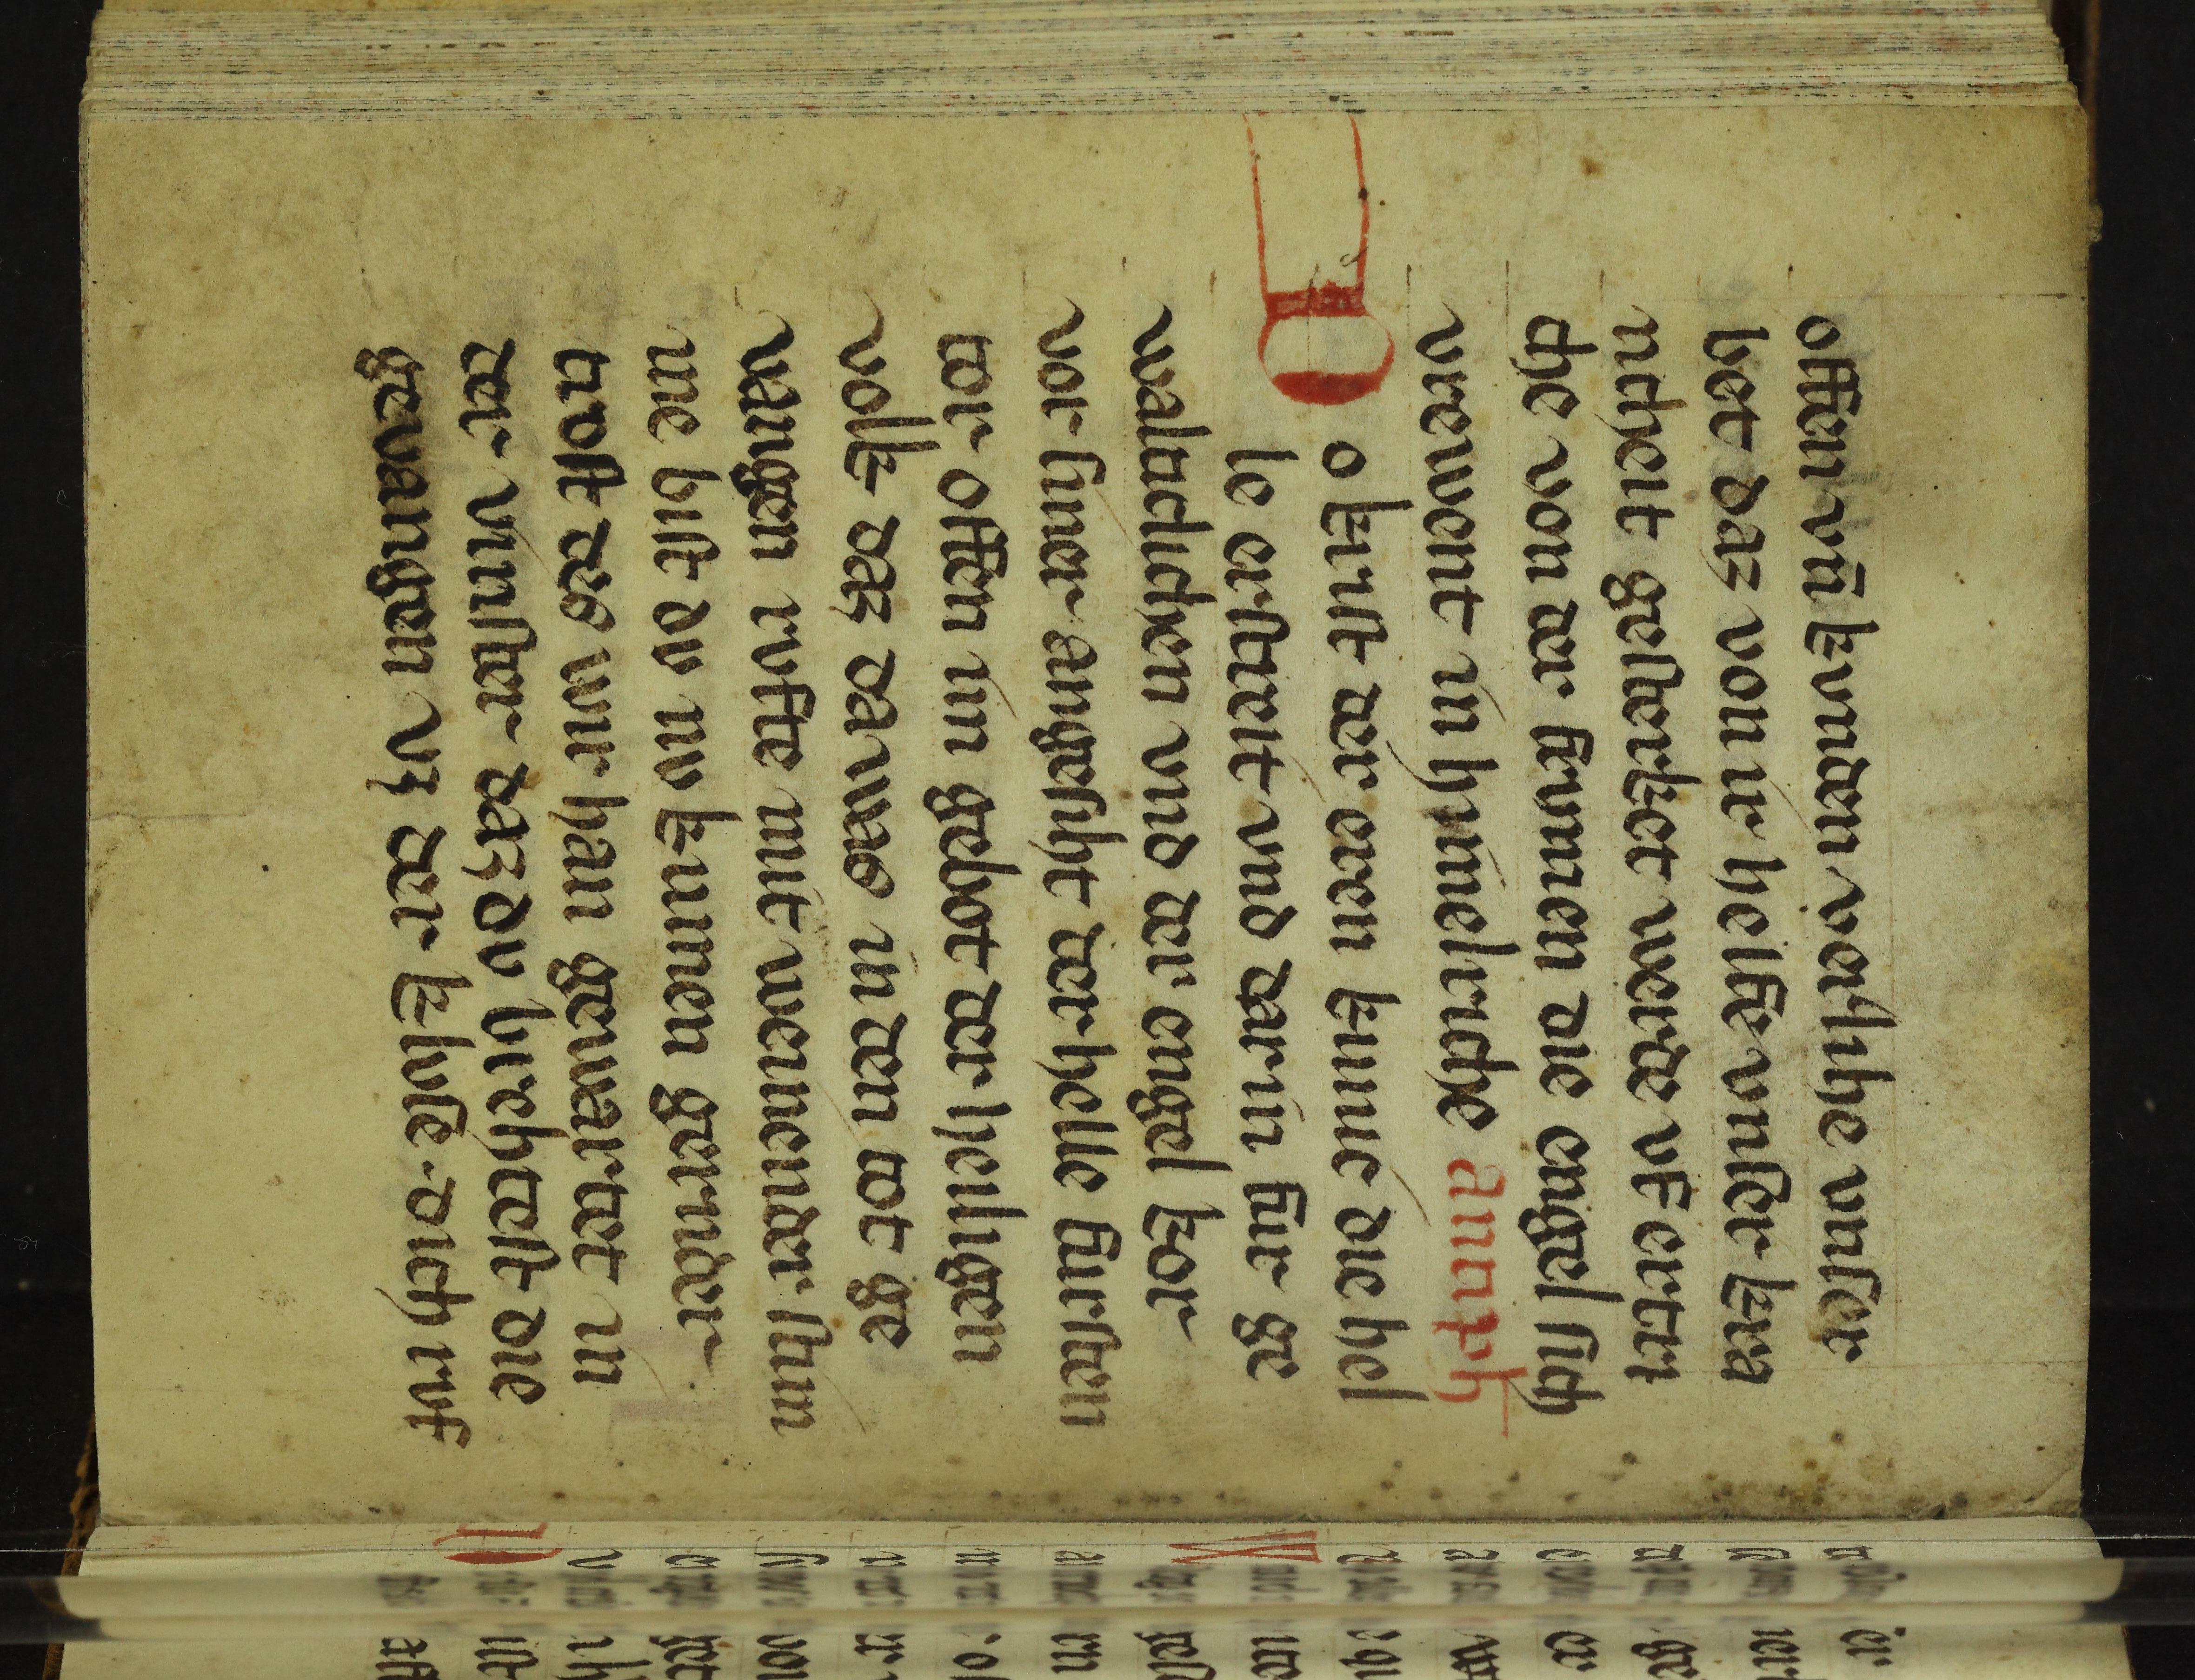 offen vn̄ kvnden velihe vnser
bot daz von ir heilge vnser kra
nchcit gesterket werde vf ertri
che von der stimmen die engel sich
vrewent in himelriche antiph
Do krist der eren kunic die hel
le erstoret vnd dar in fur ge
walticlichen vnd der engel kor
vor siner angesiht der helle fursten
tor offen im gebot der heiligen
volk daz da was in dem tot ge
vangen rvfte mit weinender stim
me bist dv nv kumen gerender
trost des wir han gewartet in
der vinster daz dv brehtest die
gevangen vz der helle. dich rvf